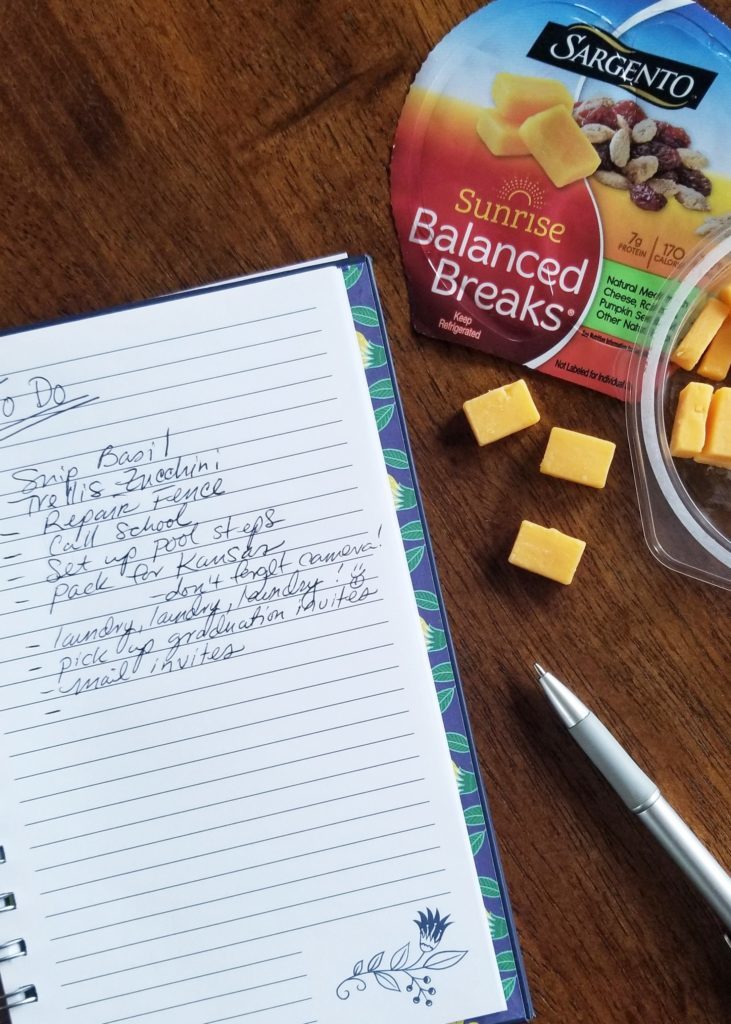 SARGENTO
Sunrise
Balanced
Breaks®
7g 170
PROTEIN
Keep
Refrigerated
Natural
Cheese,
Pumpkin
Other
Not Labeled for Individual
To Do
Snip Basil
Trellis Zucchini
- Repair Fence
- Call School
- Set up pool steps
- pack for Kansas
- don't forget camera!
- laundry, laundry, laundry!
- pick up graduation invites
- mail invites
-